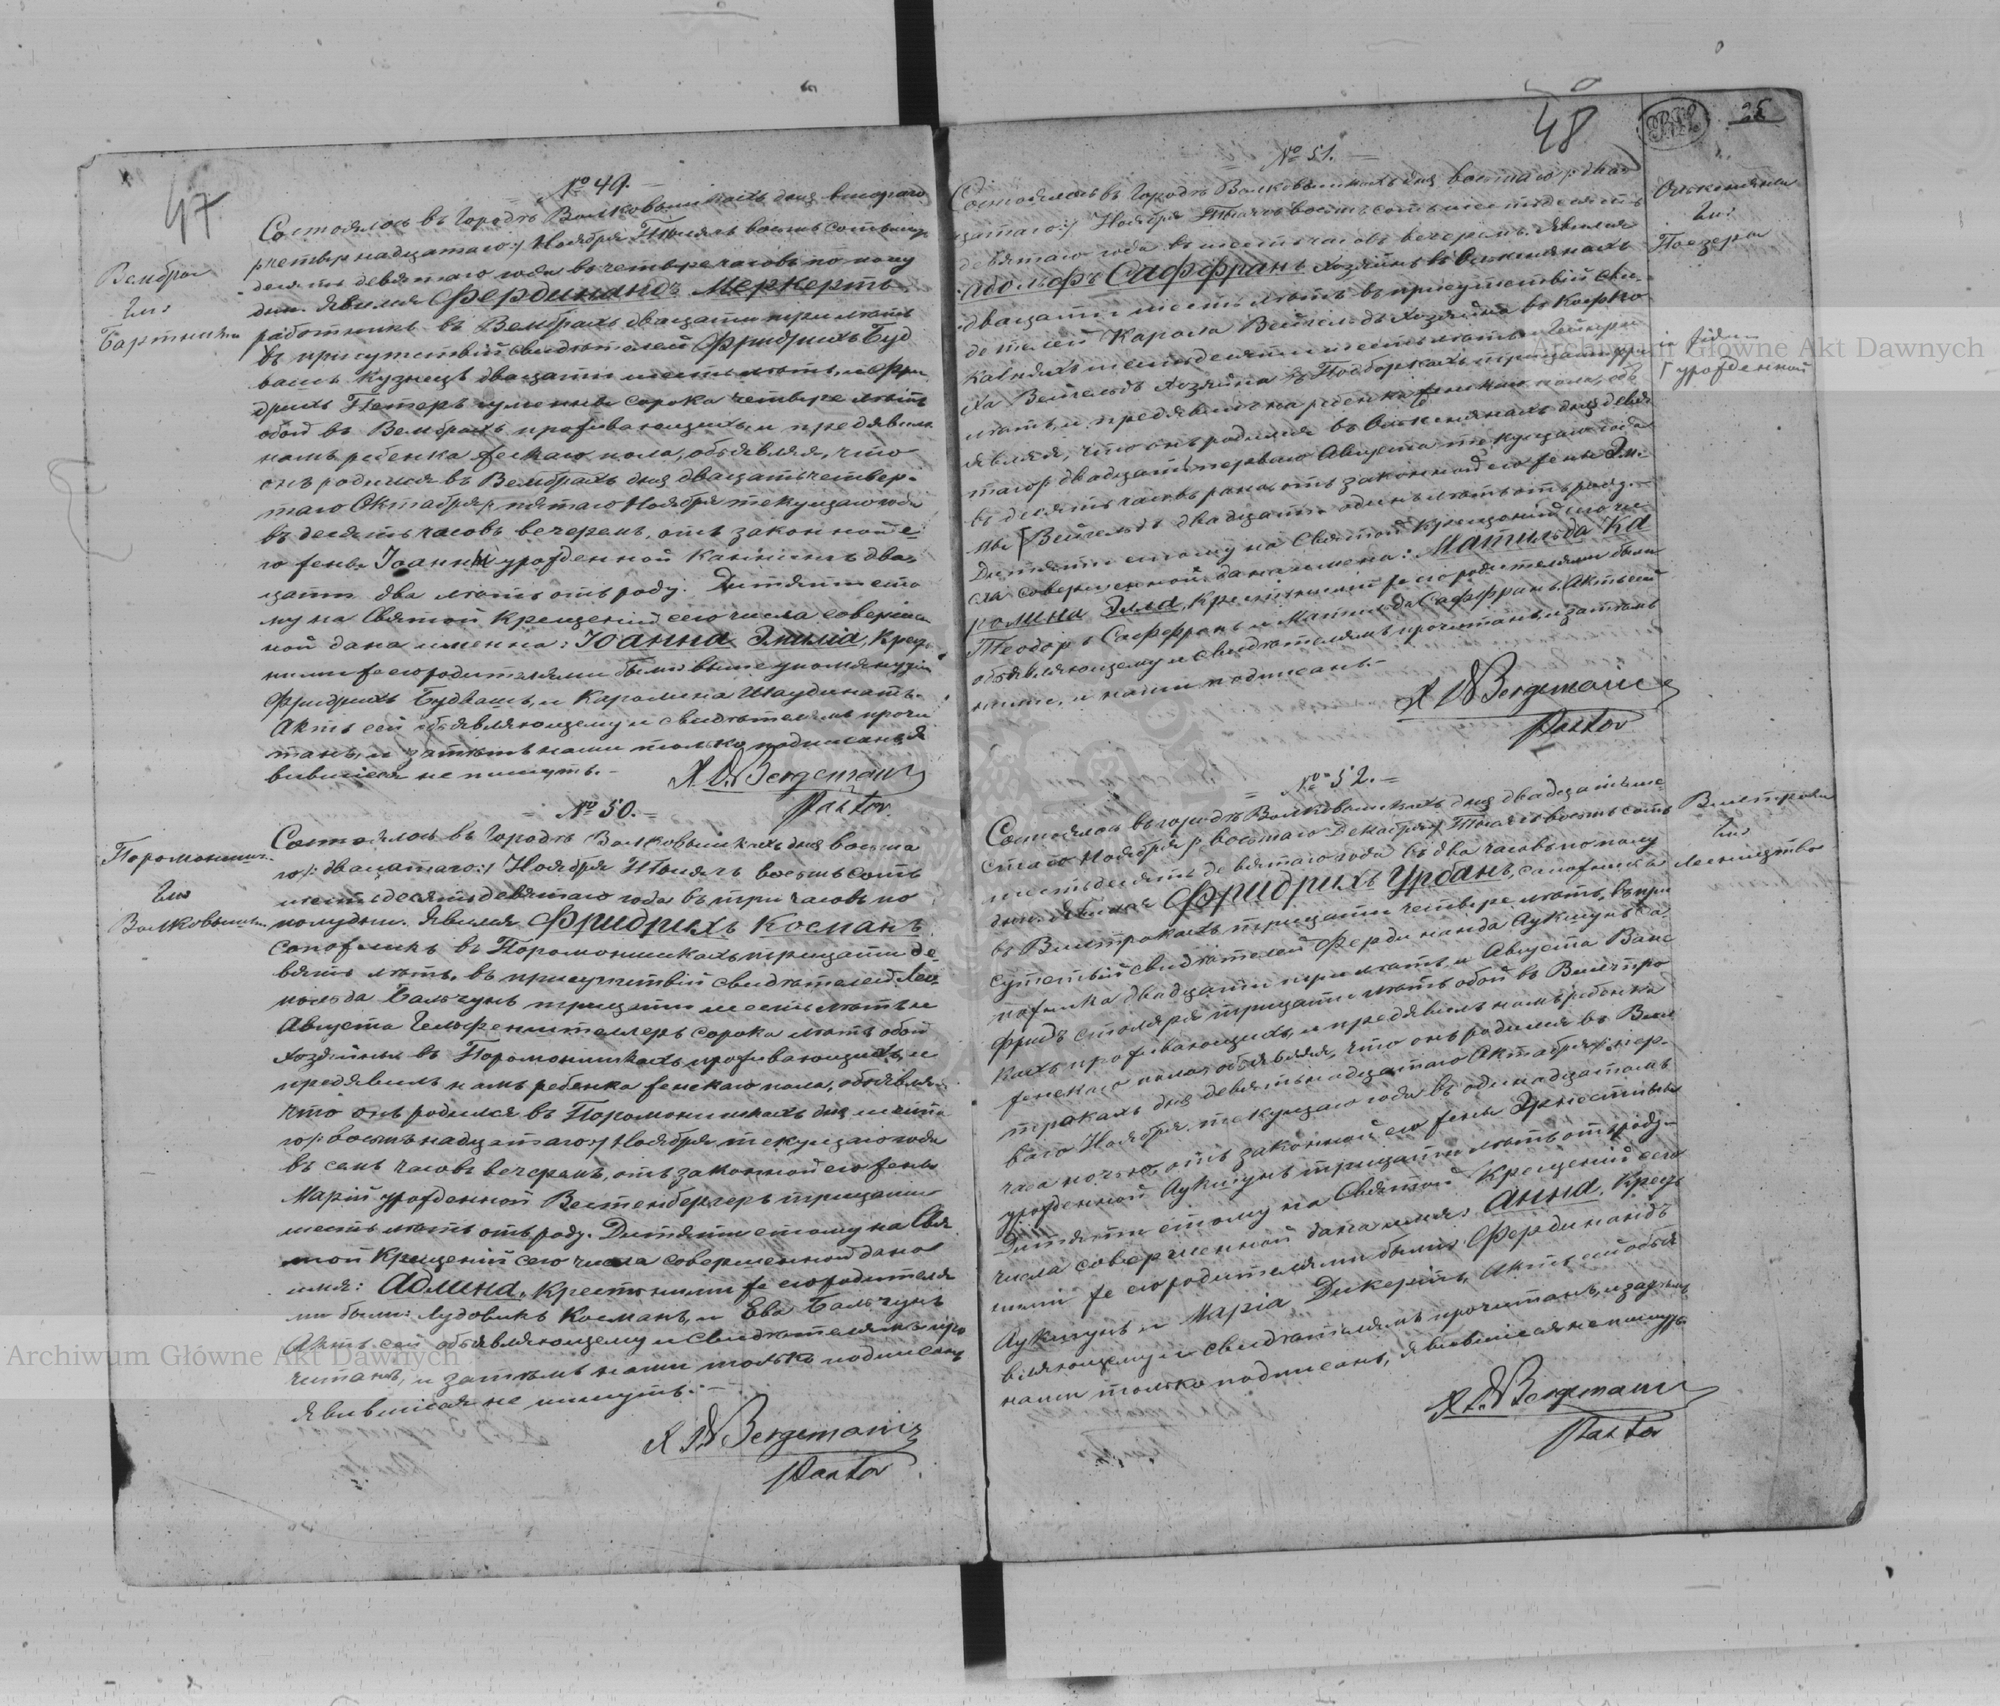 47
№ 49.
Вембры
Гм:
Состоялось въ городѣ Волковышкахъ дня втораго
/:четырнадцатаго:/ Ноября Тысяча восемь сотъ шесть
десятъ девятаго года въ четыре часовъ по полу
дни. Явился Фердинандъ Меркертъ
работникъ въ Вембрахъ двацати три лѣтъ
въ присутствіи свидѣтелей Фридриха Буд
вашъ кузнецъ двацати шесть лѣтъ, и Фри
дриха Петеръ сорока четыре лѣтъ
обои въ Вембрахъ проживающихъ, и предявилъ
намъ ребенка женскаго пола, объявляя, что
онъ родился въ Вембрахъ дня двацать четвер-
таго Октября /: пятаго Ноября текущаго года
въ десять часовъ вечеромъ, отъ законной е
го жены Іоанны урожденной два,
цати два лѣтъ отъ роду. Дитяти это
му на Святой Крещеніи сего числа соверше
ной дана имена: Іоанна Эмилія, Крест
ными же его родителями были выше упомянутый
Фридрихъ Будвашъ, и Каролина
Актъ сей объявляющему и свидѣтелямъ прочи
танъ, и затѣмъ нами только подписанъ Я
вившіеся не пишутъ.-
Bergemann
Pastor.
№ 50.
Состоялось въ городѣ Волковышкахъ дня восьма
го /: двацатаго:/ Ноября Тысяча восемь сотъ
шестьдесятъ девятаго года въ три часовъ по
полудни. Явился Фридрихъ Косманъ
въ Поромонишкахъ трицати де-
вять лѣтъ, въ присутствіи свидѣтелей Лео-
польда Бальчунъ трицати шесть лѣтъ и
Августа сорока лѣтъ обои
хозяины въ Поромонишкахъ проживающихъ, и
предявилъ намъ ребенка женскаго пола, объявляя
что онъ родился въ Поромонишкахъ дня шеста
го /: восемьнадцатаго:/ Ноября текущаго года
въ семь часовъ вечеромъ, отъ законной его жены
Марій урожденной Вестенбергеръ трицати
шесть лѣтъ отъ роду. Дитяти этому на Свя
той Крещеніи сего числа совершенной дано
имя: Адлина, Крестными же его родителя
ми были: Лудовикъ Косманъ, и Ева Бальчунъ
Актъ сей объявляющему и свидѣтелямъ про
читанъ, и затѣмъ нами только подписанъ
явившіеся не пишутъ.-
Bergemann
Pastor
48
25
№ 51.
Гм:
Поезеры
Состоялось въ городѣ Волковышкахъ дня восьмаго /: двад
цатаго:/ Ноября Тысяча восемь сотъ шестьдесятъ
девятаго года въ шесть часовъ вечеромъ. Явился
Адольфъ Саффранъ хозяинъ въ
двацати шесть лѣтъ въ присутствіи сви-
дѣтелей Карола Вейгельдъ хозяина въ
шестьдесяти шесть лѣтъ и Гейнри
ха Вейгельдъ хозяина въ Подборкахъ трицати три
лѣтъ, и предявилъ намъ ребенка женскаго пола, объ
являя, что онъ родился въ дня девя
таго /: двадцать перваго Августа текущаго года
въ десять часовъ рана, отъ законной его жены Эм-
Вейгельдъ двадцати одинъ лѣтъ отъ роду.
Дитяти этому на Святой Крещеніи сего чи
сла совершенной дана имена: Матильда Ка
ролина Эмма, Крестными же его родителями были
Теодоръ Саффранъ и Матильда Саффранъ. Актъ сей
объявляющему и свидѣтелямъ прочитанъ, и затѣмъ
ними, и нами подписанъ.-
урожденной
Bergemann
Pastor
№ 52.
Гм:
Состоялось въ городѣ Волковышкахъ дня двадцать ше
стаго Ноября /: восьмаго Декабря:/ Тысяча восемь сотъ
шестьдесятъ девятаго года въ два часовъ по полу
дни. Явился Фридрихъ Урбанъ,
въ трицати четыре лѣтъ, въ при
сутствіи свидѣтелей Фердинанда Аукшунъ са
пожника двадцати три лѣтъ, и Августа
фридъ столяръ трицати лѣтъ обои въ
кахъ проживающихъ, и предявилъ намъ ребенка
женскаго пола, объявляя, что онъ родился въ
тракахъ дня девятьнадцатаго Октября /: пер-
ваго Ноября текущаго года въ одинадцатомъ
часа ночью, отъ законной его жены Эрнестины
урожденной Аукшунъ трицати лѣтъ отъ роду.-
Дитяти этому на Святой Крещеніи сего
числа совершенной дана имя: Анна, Крест
ными же его родителями были: Фердинандъ
Аукшунъ и Марія Дикертъ, Актъ сей объя
вляющему и свидѣтелямъ прочитанъ, и затѣмъ
нами только подписанъ, явившіеся не пишутъ
Bergemann
Pastor
Archiwum Główne Akt Dawnych
Archiwum Główne Akt Dawnych